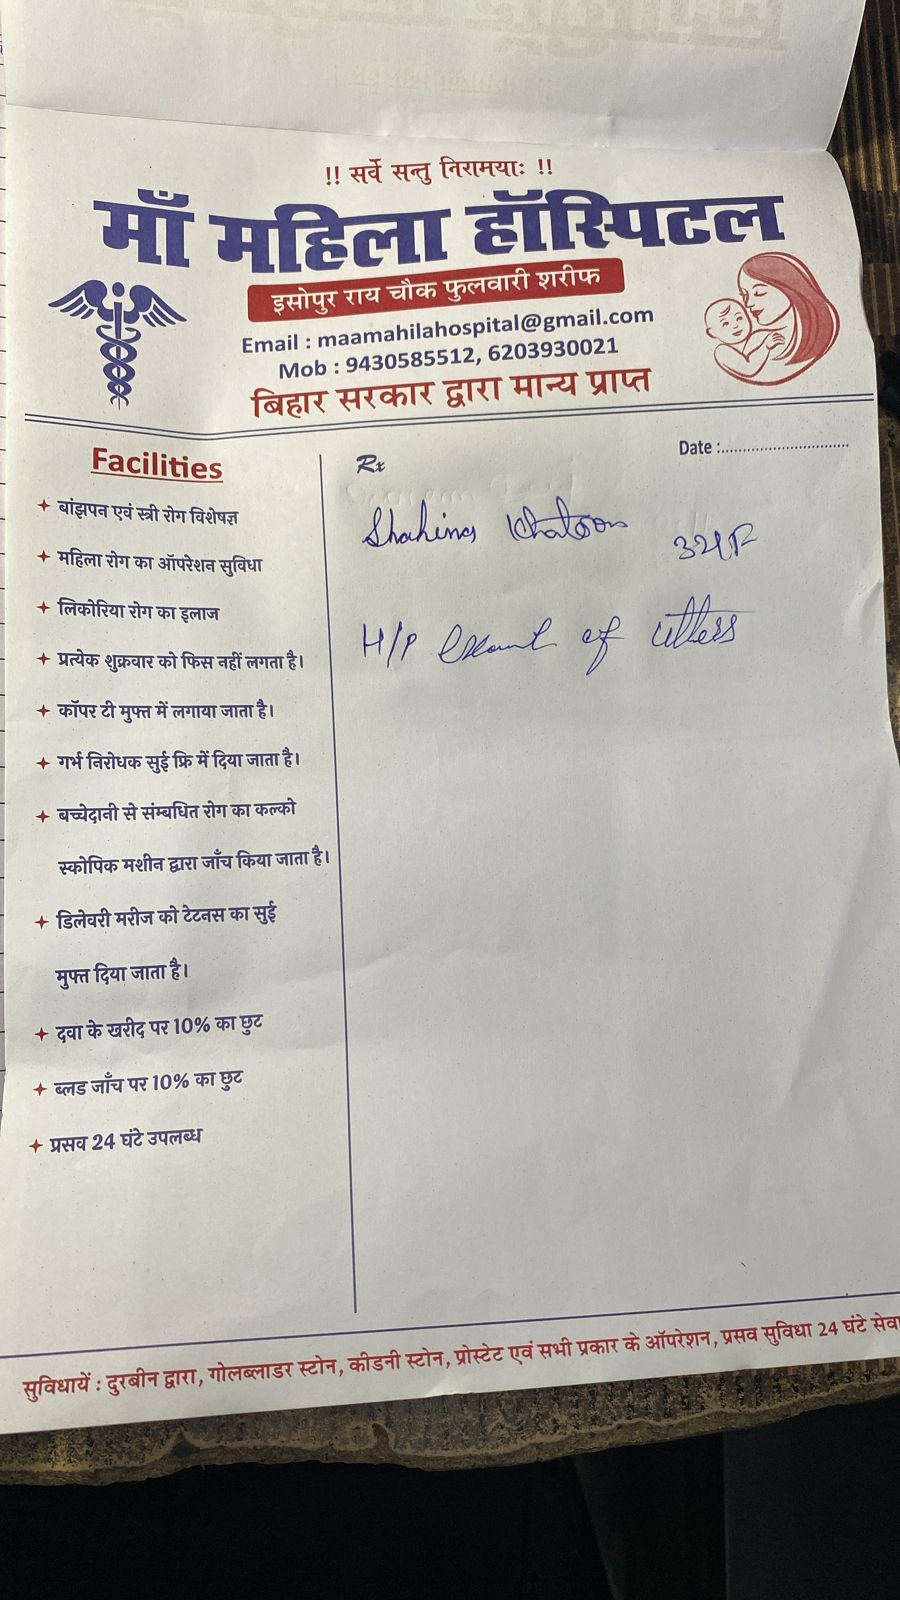 !! सर्वे सन्तु निरामयाः !!
माँ महिला हॉस्पिटल
इसोपुर राय चौक फुलवारी शरीफ
Email : maamahilahospital@gmail.com
Mob : 9430585512, 6203930021
बिहार सरकार द्वारा मान्य प्राप्त
Facilities
बांझपन एवं स्त्री रोग विशेषज्ञ
महिला रोग का ऑपरेशन सुविधा
लिकोरिया रोग का इलाज
प्रत्येक शुक्रवार को फिस नहीं लगता है।
कॉपर टी मुफ्त में लगाया जाता है।
गर्भ निरोधक सुई फ्रि में दिया जाता है।
बच्चेदानी से संम्बधित रोग का कल्को
स्कोपिक मशीन द्वारा जाँच किया जाता है।
डिलेवरी मरीज को टेटनस का सुई
मुफ्त दिया जाता है।
दवा के खरीद पर 10% का छुट
ब्लड जाँच पर 10% का छुट
प्रसव 24 घंटे उपलब्ध
Rx
Date :..............................
Shahina Khatoon
H/P of
सुविधायें : दुरबीन द्वारा, गोलब्लाडर स्टोन, कीडनी स्टोन, प्रोस्टेट एवं सभी प्रकार के ऑपरेशन, प्रसव सुविधा 24 घंटे